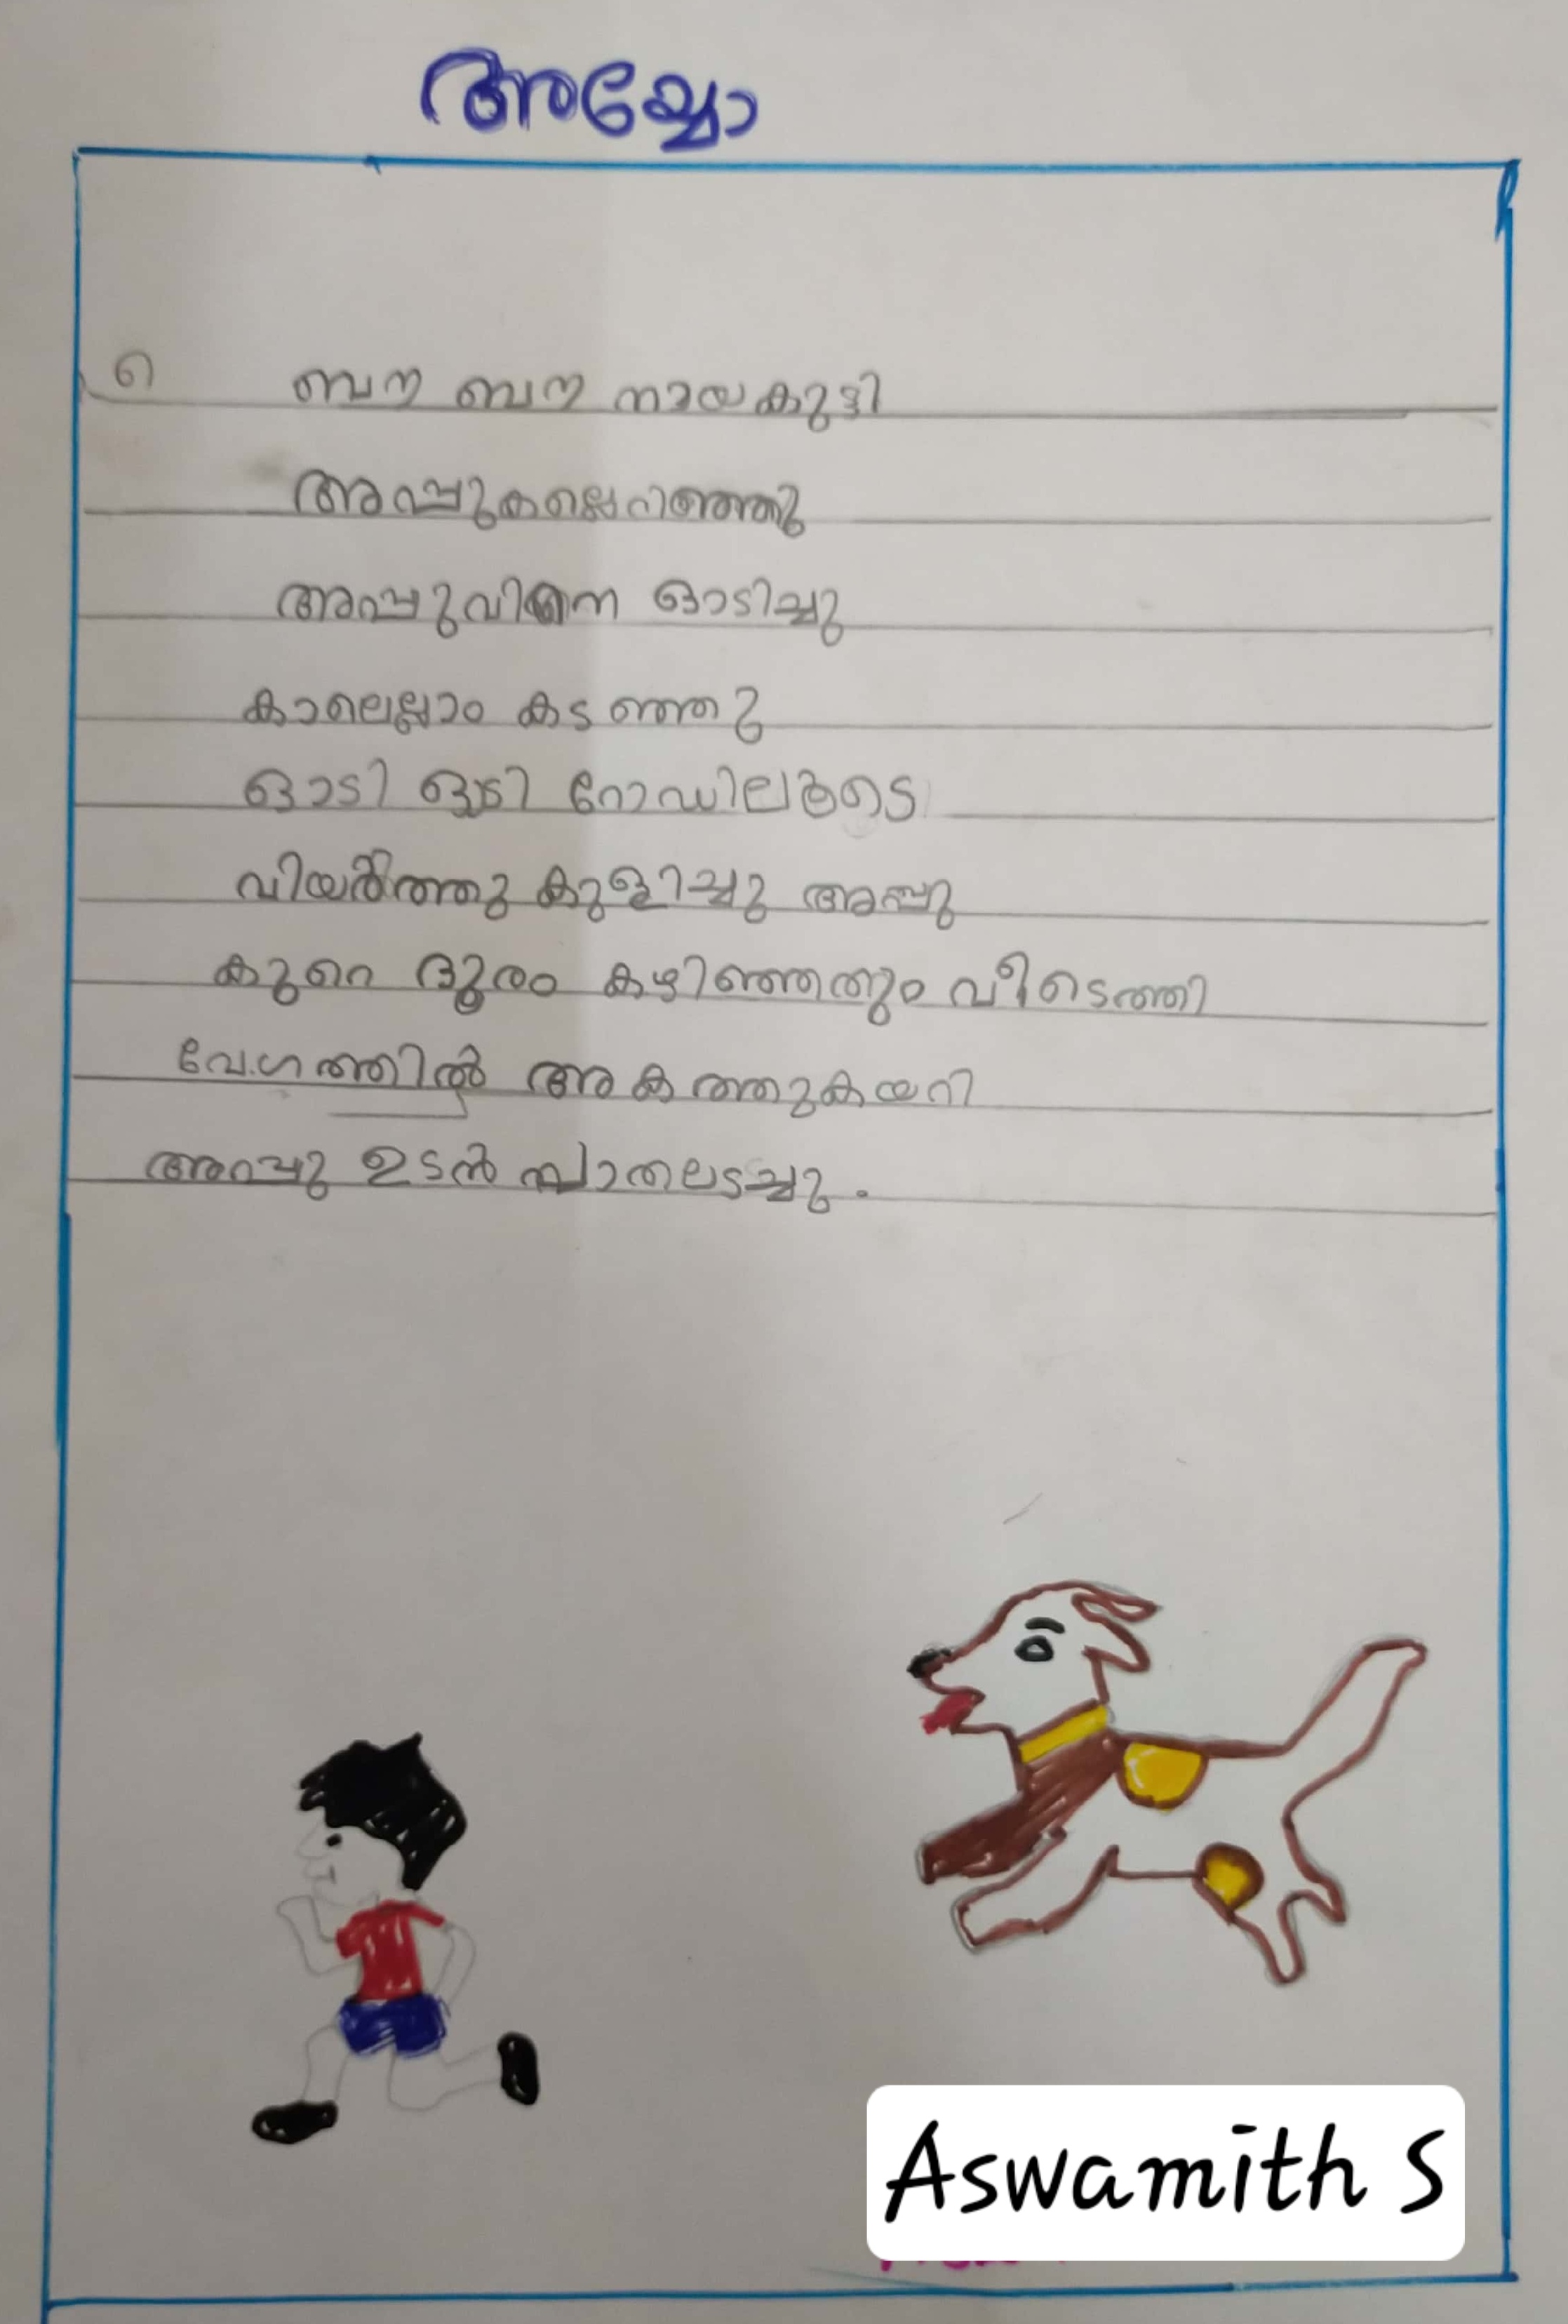 അയ്യോ
ബൗ ബൗ നായകുട്ടി
അപ്പുകല്ലെറിഞ്ഞു
അപ്പുവിനെ ഓടിച്ചു
കാലെല്ലാം കടഞ്ഞു
ഓടി ഓടി റോഡിലൂടെ
വിയർത്തു കുളിച്ചു അപ്പു
കുറെ ദൂരം കഴിഞ്ഞതും വീടെത്തി
വേഗത്തിൽ അകത്തുകയറി
അപ്പു ഉടൻ വാതലടച്ചു.
Aswamith S